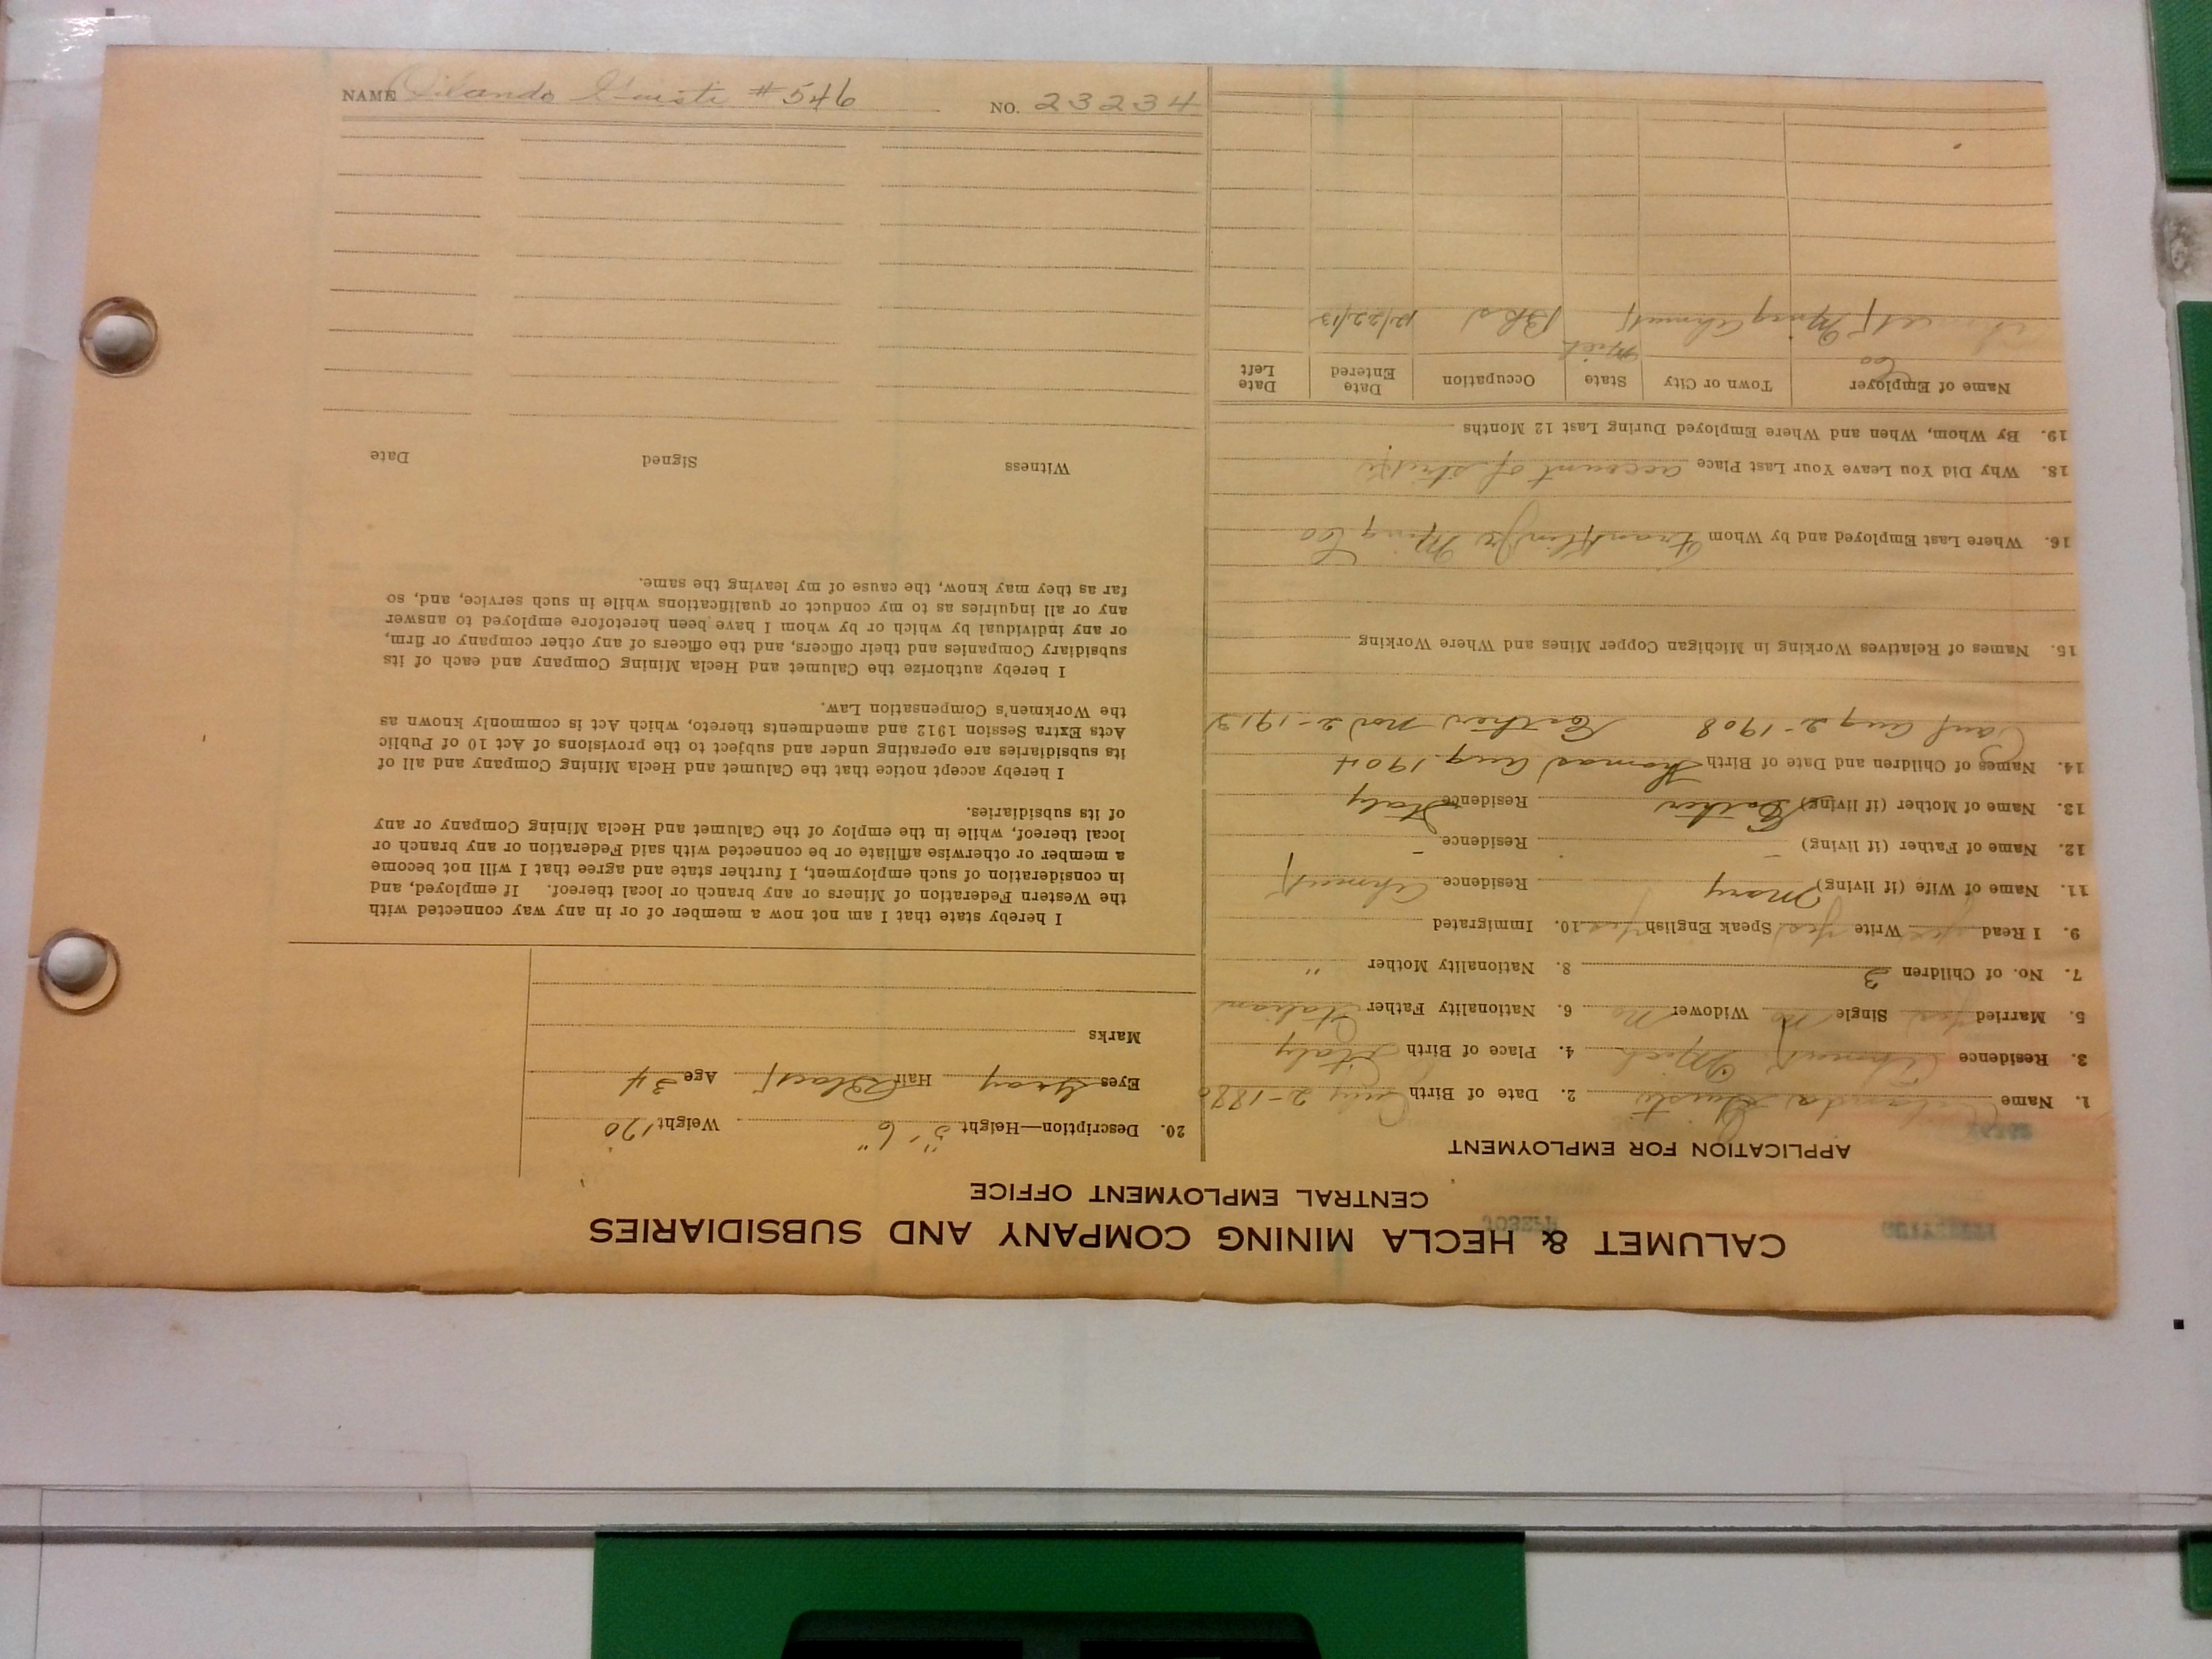 CALUMET & HECLA MINING COMPANY AND SUBSIDIARIES
CENTRAL EMPLOYMENT OFFICE
APPLICATION FOR EMPLOYMENT
1. Name Orlando Giusti 2. Date of Birth July 2-1880
3. Residence Ahmeek Mich 4. Place of Birth Italy
5. Married yes Single no Widower no 6. Nationality Father Italian
7. No. of Children 3 8. Nationality Mother "
9. I Read yes Write yes Speak English yes 10. Immigrated
11. Name of Wife (if living) Mary Residence Ahmeek
12. Name of Father (if living) - Residence -
13. Name of Mother (if living) Residence Italy
14. Names of Children and Date of Birth Thomas Aug. 1904
Paul Aug 2-1908 Nov 2-1913
15. Names of Relatives Working in Michigan Copper Mines and Where Working
16. Where Last Employed and by Whom Franklin Jr Mining Co
18. Why Did You Leave Your Last Place account of strike
19. By Whom, When and Where Employed During Last 12 Months
Name of Employer Town or City State Occupation Date Entered Date Left
Ahmeek Mining Co Ahmeek Mich 12/22/13
20. Description—Height 5' 6" Weight 170
Eyes Gray Hair Black Age 34
Marks
I hereby state that I am not now a member of or in any way connected with
the Western Federation of Miners or any branch or local thereof. If employed, and
in consideration of such employment, I further state and agree that I will not become
a member or otherwise affiliate or be connected with said Federation or any branch or
local thereof, while in the employ of the Calumet and Hecla Mining Company or any
of its subsidiaries.
I hereby accept notice that the Calumet and Hecla Mining Company and all of
its subsidiaries are operating under and subject to the provisions of Act 10 of Public
Acts Extra Session 1912 and amendments thereto, which Act is commonly known as
the Workmen's Compensation Law.
I hereby authorize the Calumet and Hecla Mining Company and each of its
subsidiary Companies and their officers, and the officers of any other company or firm,
or any individual by which or by whom I have been heretofore employed to answer
any or all inquiries as to my conduct or qualifications while in such service, and, so
far as they may know, the cause of my leaving the same.
Witness Signed Date
NAME Orlando Giusti #546 NO. 23234